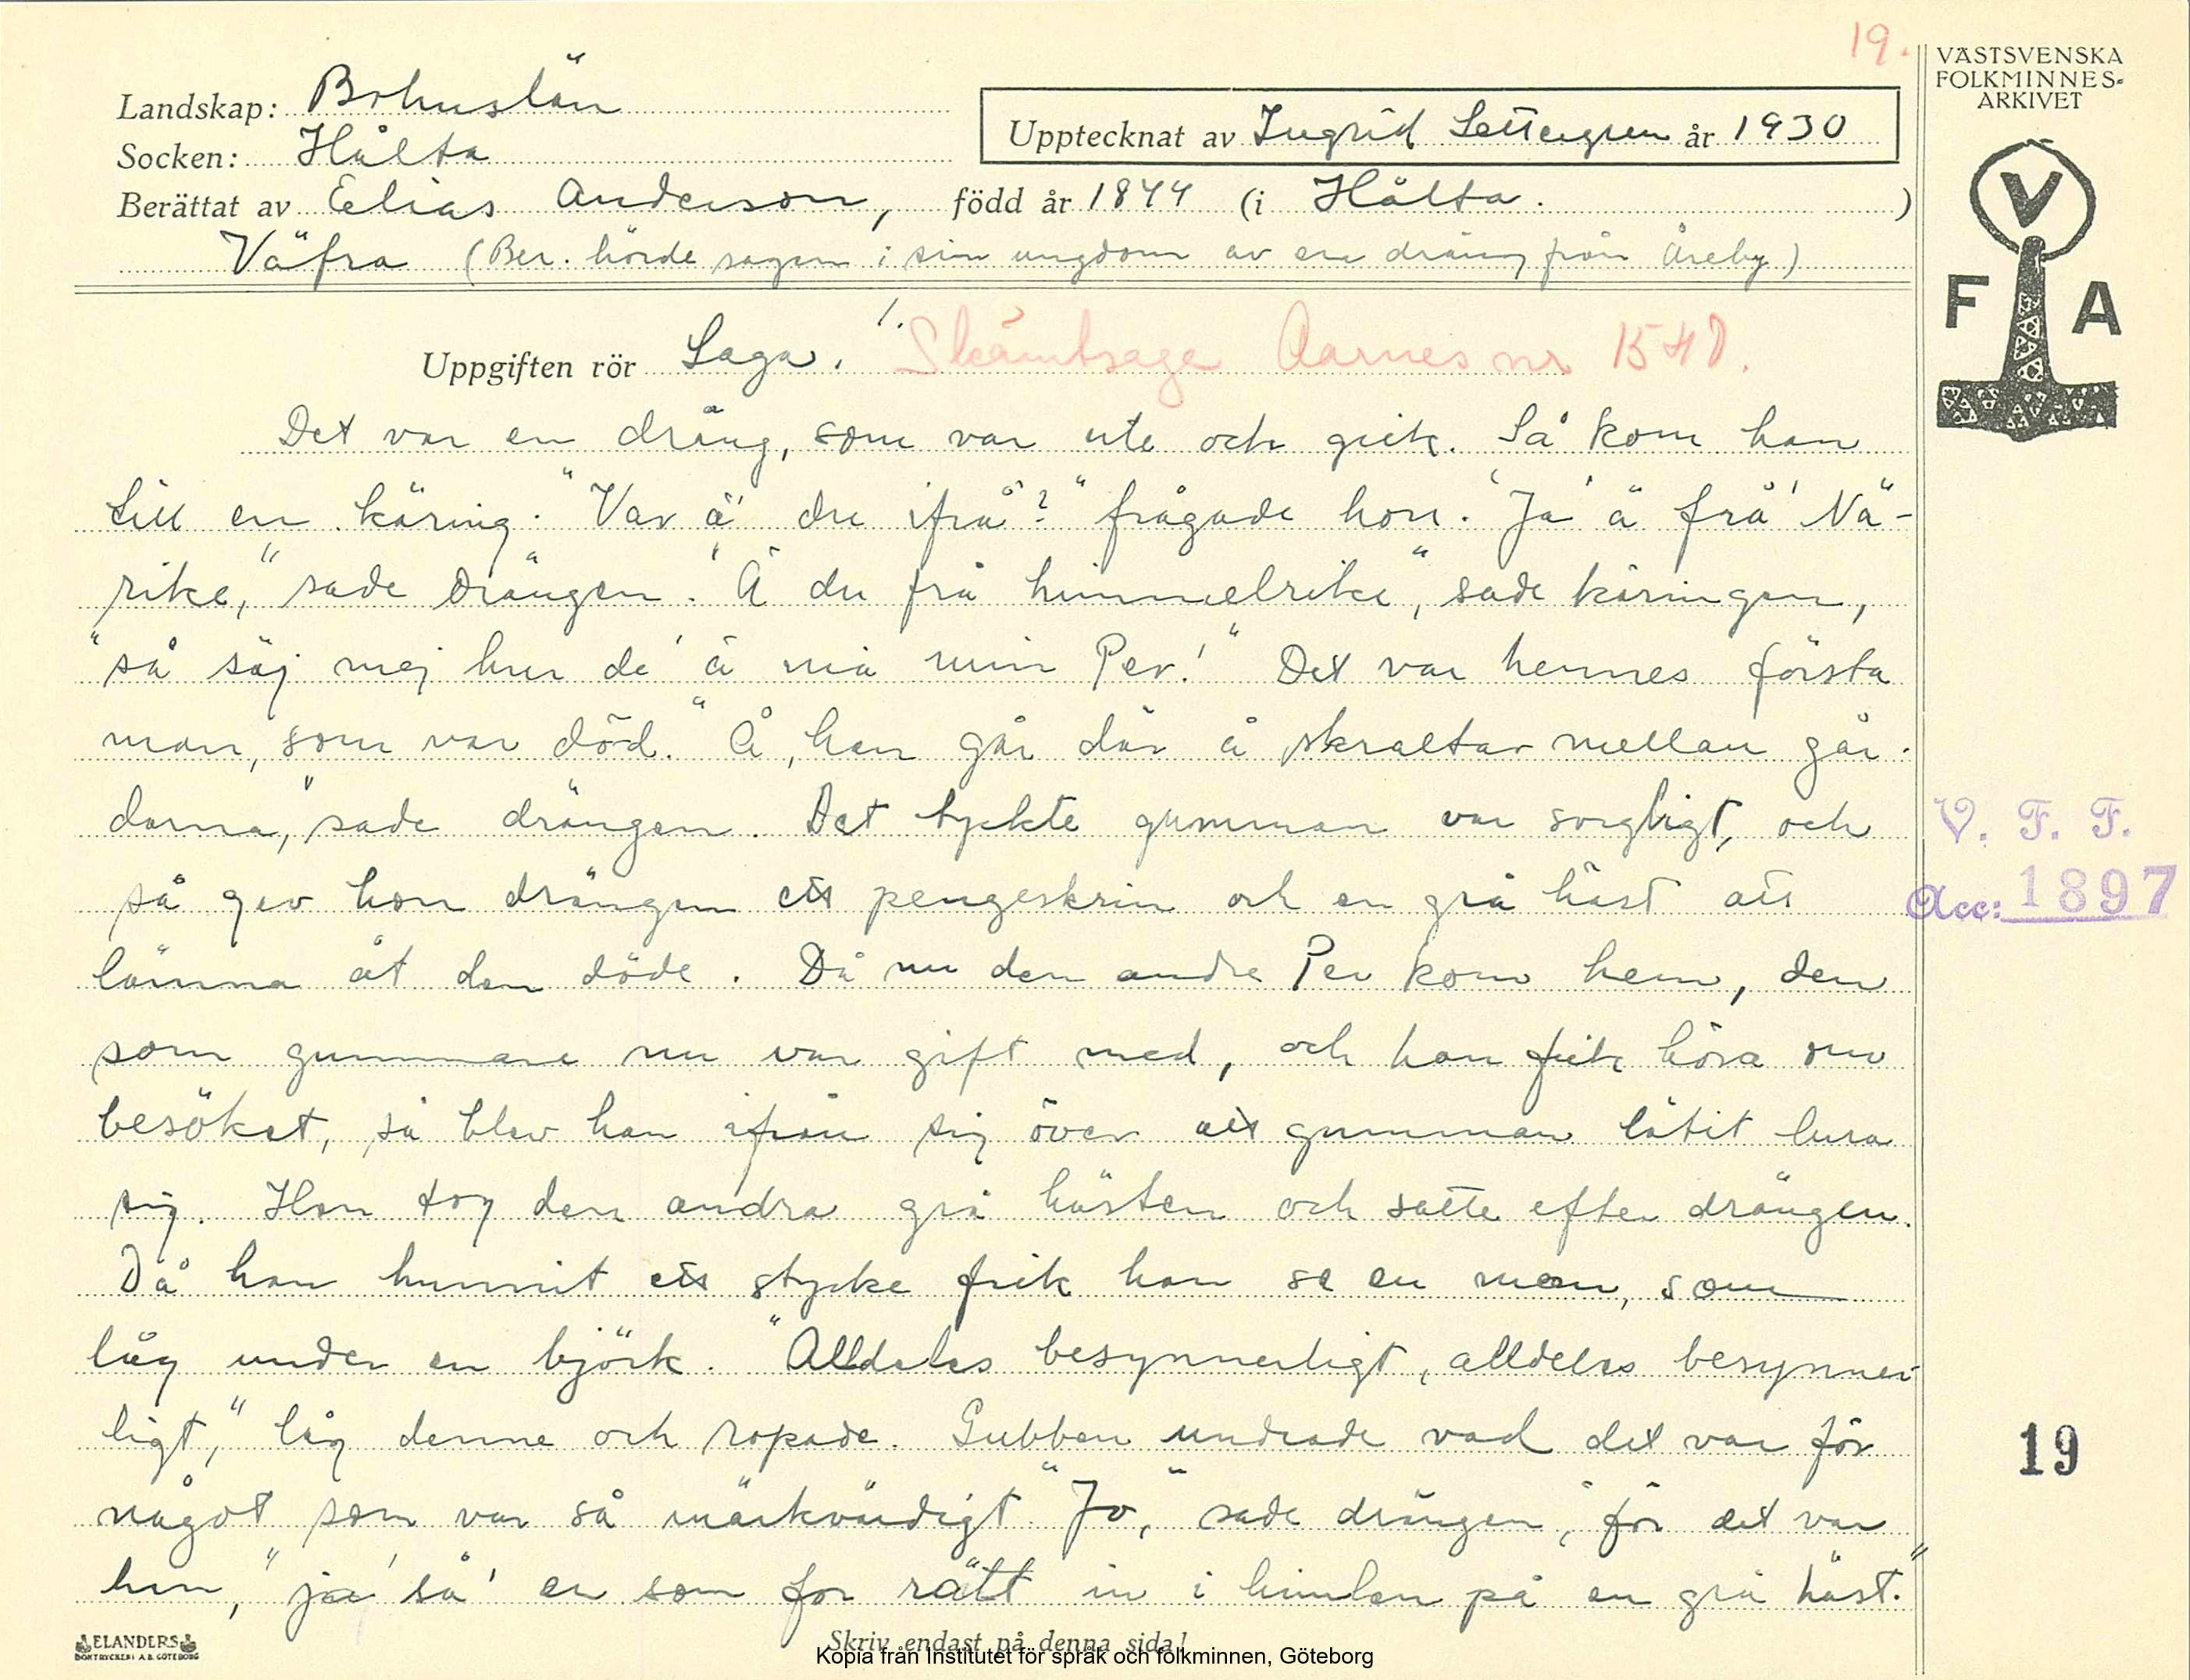 19.
VÄSTSVENSKA
FOLKMINNES-
ARKIVET
Landskap: Bohuslän
Socken: Hålta
Upptecknat av Ingrid Settergren år 1930
Berättat av Elias Anderson, född år 1844 (i Hålta. )
Väfra (Ber. hörde sagan i sin ungdom av en dräng från Åreby)
V
F A
1.
Uppgiften rör Saga. Skämtsaga Aarnes nr 1540.
Det var en dräng, som var ute och gick. Så kom han
till en käring. "Var ä' du ifrå?" frågade hon. "Ja' ä' frå' Nä-
rike," sade drängen. "Ä' du frå himmelrike", sade käringen,
"så säj mej hur de' ä' mä min Per!" Det var hennes första
man, som var död. "Å, han går där å skraltar mellan går-
darna," sade drängen. Det tyckte gumman var sorgligt, och
så gav hon drängen ett pengeskrin och en grå häst att
lämna åt den döde. Då nu den andre Per kom hem, den
som gumman nu var gift med, och han fick höra om
besöket, så blev han ifrån sig över att gumman låtit lura
sig. Han tog den andra grå hästen och satte efter drängen.
Då han hunnit ett stycke fick han se en man, som
låg under en björk. "Alldeles besynnerligt, alldeles besynner-
ligt," låg denne och ropade. Gubben undrade vad det var för
något som var så märkvärdigt. "Jo," sade drängen, för det var
han, "ja' så' en som for rätt in i himlen på en grå häst.
V. F. F.
Acc: 1897
19
ELANDERS
BOKTRYCKERI A.B. GÖTEBORG
Skriv endast på denna sida!
Kopia från Institutet för språk och folkminnen, Göteborg